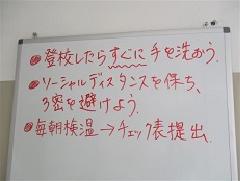 ●登校したらすぐに手を洗おう.
●ソーシャルディスタンスを保ち、
3密を避けよう.
●毎朝検温→チェック表提出.